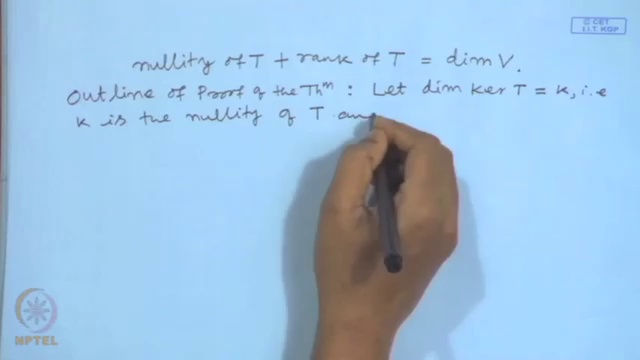 © CET
I.I.T. KGP
nullity of T + rank of T = dim V.
Outline of Proof of the Thm : Let dim ker T = k, i.e
k is the nullity of T. and
NPTEL